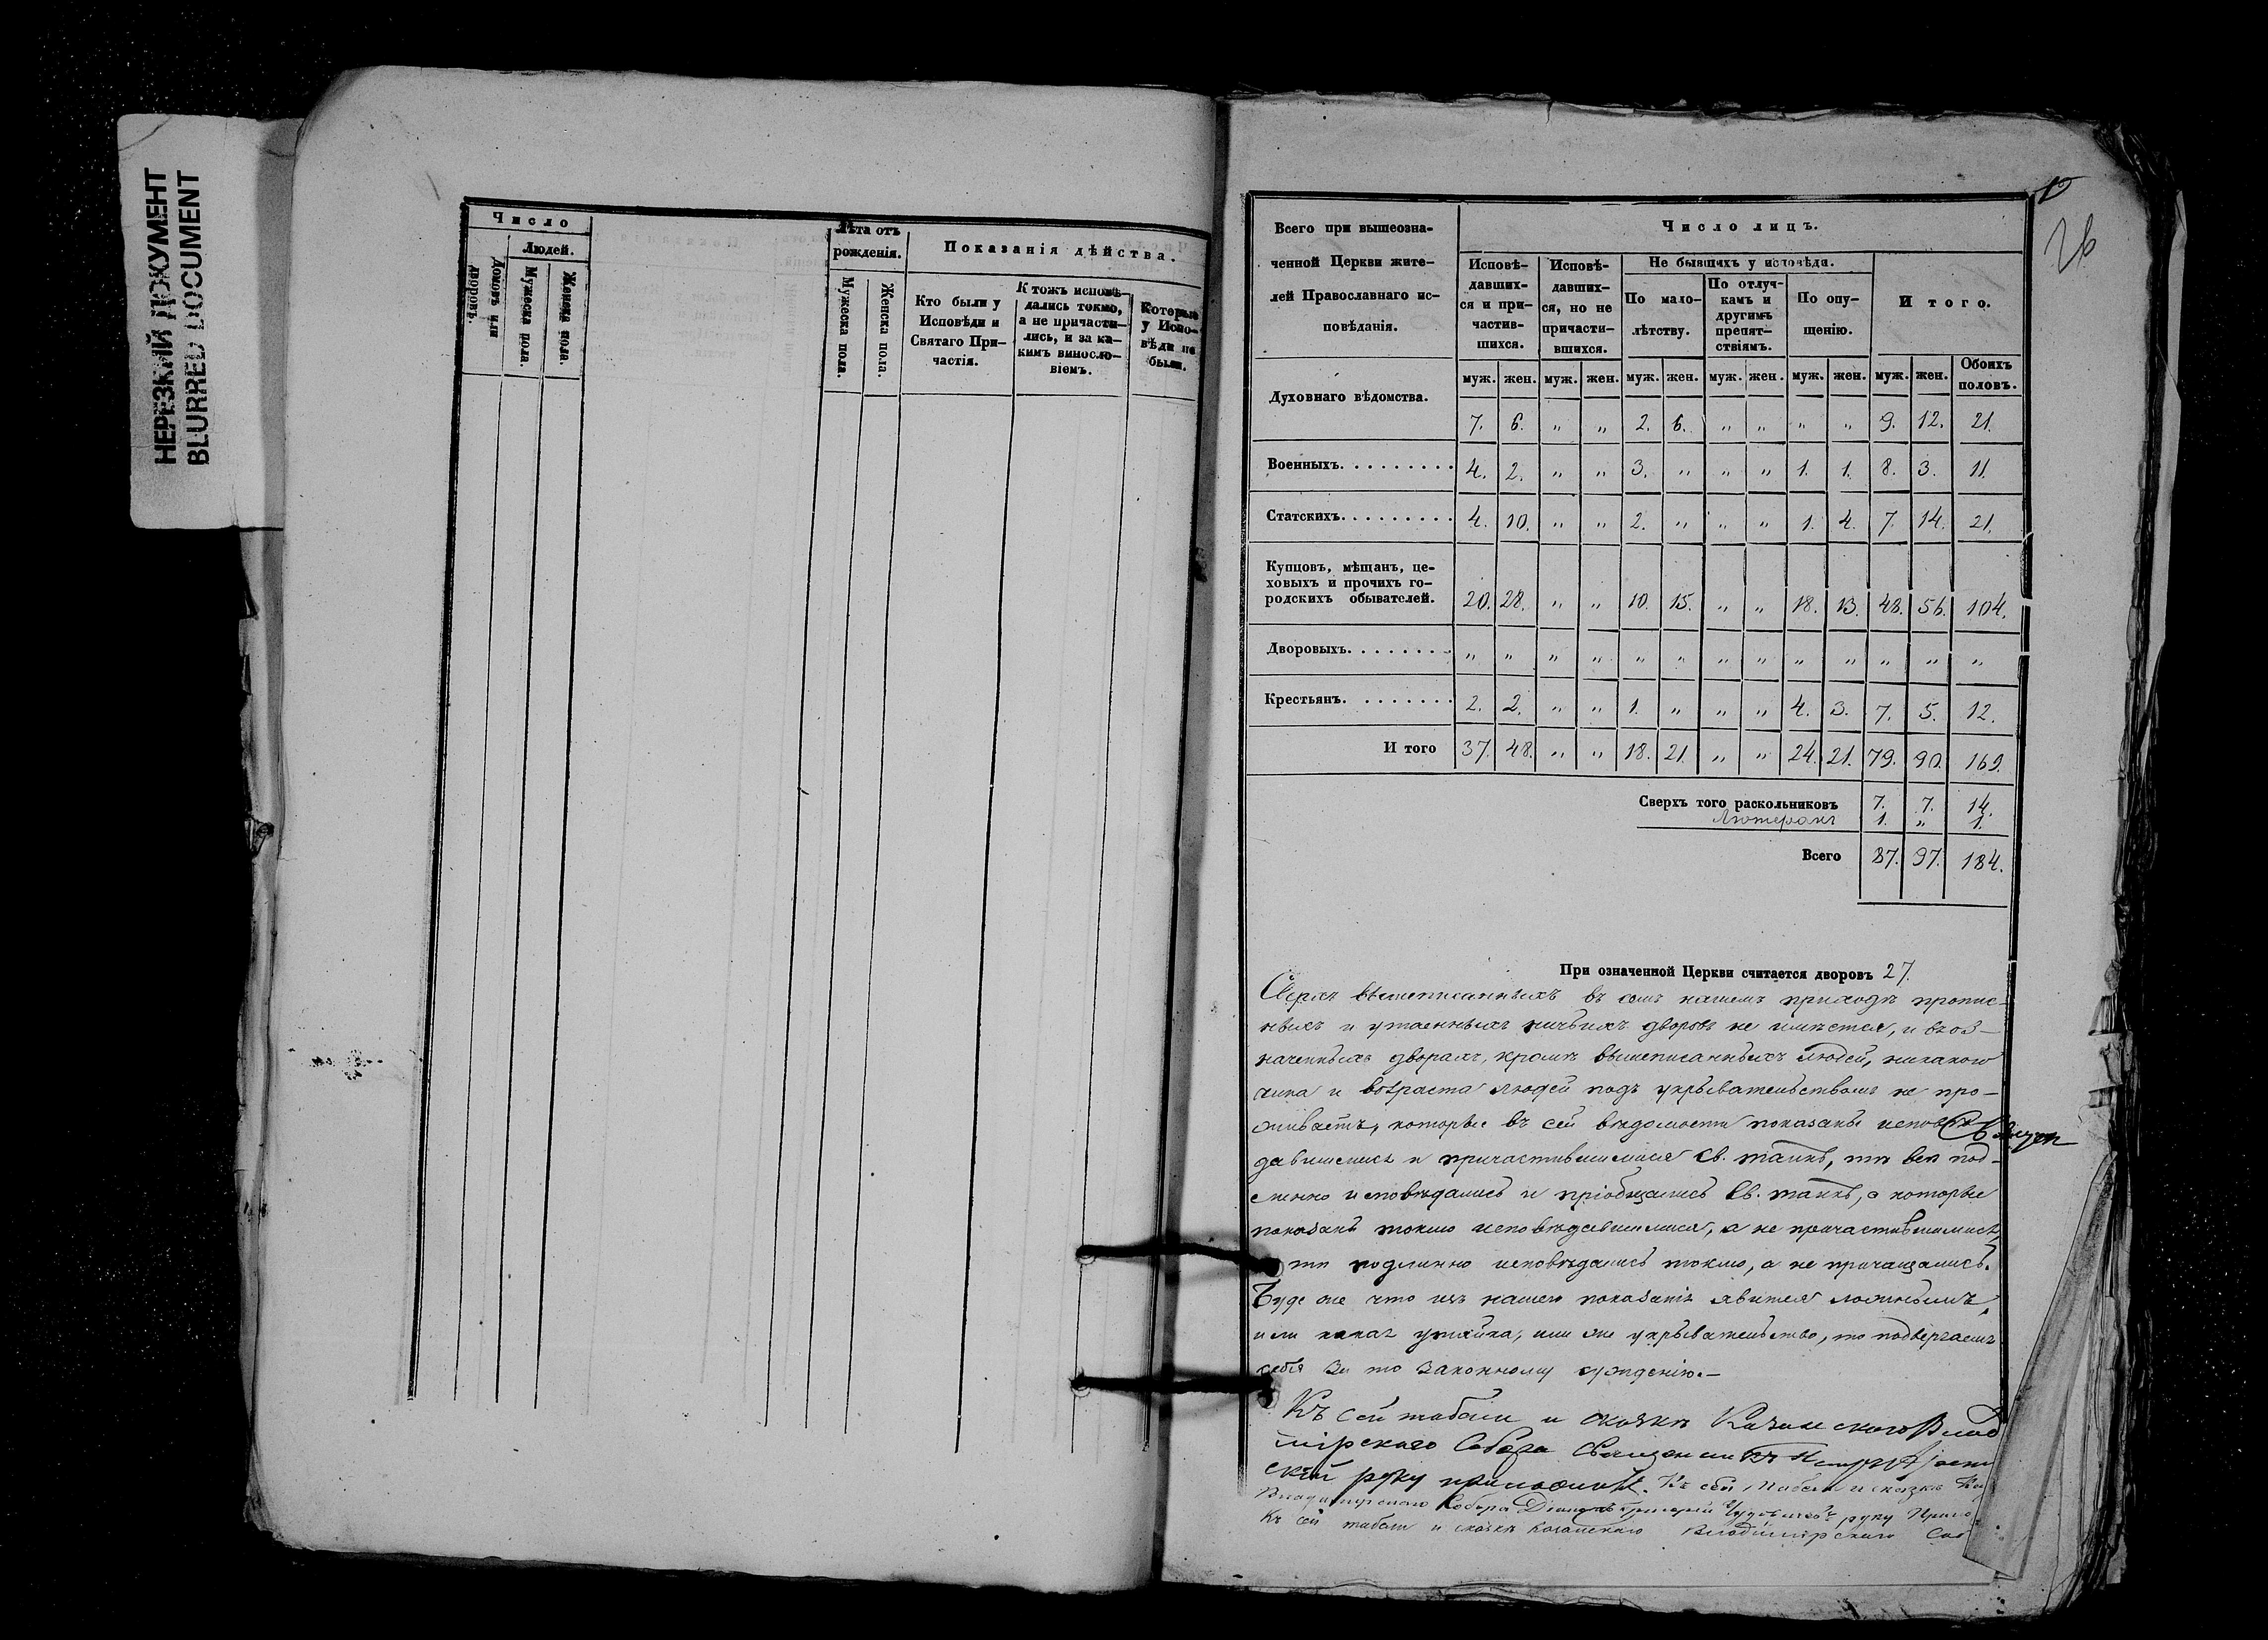 НЕРЕЗКИЙ ДОКУМЕНТ
BLURRED DOCUMENT
Число
Людей.
Домовъ или дворовъ.
Мужеска пола.
Женска пола.
Лѣта отъ рожденія.
Мужеска пола.
Женска пола.
Показанія дѣйства.
Кто были у
Исповѣди и
Святаго При-
частія.
К тожъ исповѣ-
дались токмо,
а не причасти-
лись, и за ка-
кимъ виносло-
віемъ.
Которые
у Испо-
вѣди не
были.
Всего при вышеозна-
ченной Церкви жите-
лей Православнаго ис-
повѣданія.
Число лицъ.
Исповѣ-
давших-
ся и при-
частив-
шихся.
Исповѣ-
давших-
ся, но не
причасти-
вшихся.
Не бывшихъ у исповѣди.
По мало-
лѣтству.
По отлуч-
камъ и
другимъ
препят-
ствіямъ.
По опу-
щенію.
Итого.
муж. жен. муж. жен. муж. жен. муж. жен. муж. жен. муж. жен. Обоихъ половъ.
Духовнаго вѣдомства. 7. 6. „ „ 2. 6. „ „ „ „ 9. 12. 21.
Военныхъ. 4. 2. „ „ 3. „ „ „ 1. 1. 8. 3. 11.
Статскихъ. 4. 10. „ „ 2. „ „ „ 1. 4. 7. 14. 21.
Купцовъ, мѣщанъ, це-
ховыхъ и прочихъ го-
родскихъ обывателей. 20. 28. „ „ 10. 15. „ „ 18. 13. 48. 56. 104.
Дворовыхъ. „ „ „ „ „ „ „ „ „ „ „ „ „
Крестьянъ. 2. 2. „ „ 1. „ „ „ 4. 3. 7. 5. 12.
И того 37. 48. „ „ 18. 21. „ „ 24. 21. 79. 90. 169.
Сверхъ того раскольниковъ 7. 7. 14.
Лютеранъ 1. „ 1.
Всего 87. 97. 184.
При означенной Церкви считается дворовъ 27.
Сверхъ вышеписанныхъ въ семъ нашемъ приходѣ пропис-
ныхъ и утаенныхъ ничьихъ дворовъ не имѣется, и въ оз-
наченныхъ дворахъ, кромѣ вышеписанныхъ людей, никакого
чина и возраста людей подъ укрывательствомъ не про-
живаетъ, которые въ сей вѣдомости показаны исповѣ-
давшимися и причастившимися Св. таинъ, тѣ всѣ под-
линно исповѣдались и пріобщались Св. таинъ, а которые
показаны токмо исповѣдавшимися, а не причастившимися,
тѣ подлинно исповѣдались токмо, а не причащались.
Буде же что изъ нашего показанія явится ложнымъ,
или какая утайка, или же укрывательство, то подвергаемъ
себя за то законному сужденію.—
Къ сей табели и сказкѣ Казанскаго Влад
мірскаго Собора Священникъ
скій руку приложилъ. Къ сей табели и сказкѣ
Владимірскаго Собора Діаконъ Григорій руку
Къ сей табели и сказкѣ Казанскаго Владимірскаго Соб